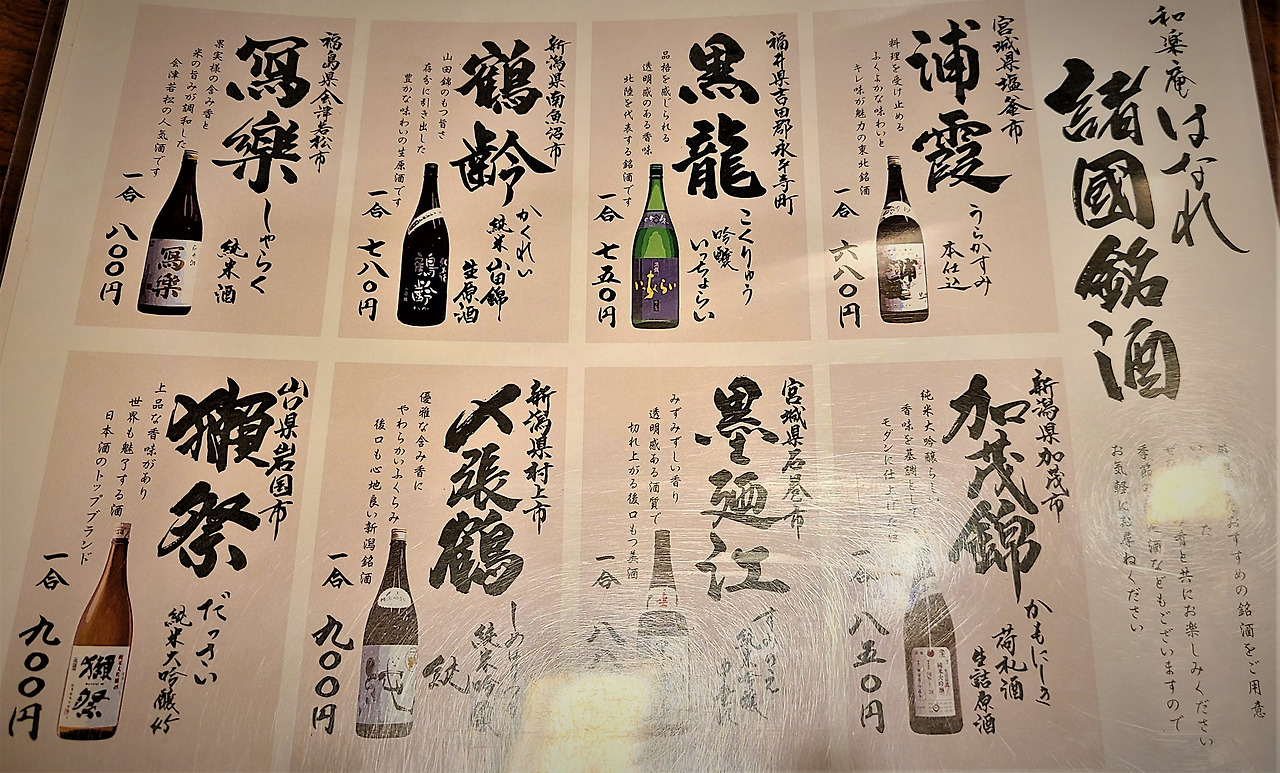 和楽庵 はなれ
諸國銘酒
おすすめの銘酒をご用意
香と共にお楽しみください
酒などもございますので
お気軽にお尋ねください
宮城県塩釜市
浦霞
うらかすみ
本仕込
料理を受け止める
ふくよかな味わいと
キレ味が魅力の東北銘酒
一合 六八〇円
福井県吉田郡永平寺町
黒龍
こくりゅう
吟醸
いっちょらい
品格を感じられる
透明感のある香味
北陸を代表する銘酒です
一合 七五〇円
いっちょらい
新潟県南魚沼市
鶴齢
かくれい
純米 山田錦
生原酒
山田錦のもつ旨さ
存分に引き出した
豊かな味わいの生原酒です
一合 七八〇円
鶴齢
福島県会津若松市
寫樂
しゃらく
純米酒
果実様の含み香と
米の旨みが調和した
会津若松の人気酒です
一合 八〇〇円
寫樂
新潟県加茂市
加茂錦
かもにしき
荷札酒
生詰原酒
純米大吟醸
香味を基調とし
モダンに仕上げた
一合 八五〇円
純米大吟醸
宮城県石巻市
墨廼江
すみのえ
純米吟醸
みずみずしい香り
透明感ある酒質で
切れ上がる後口もつ美酒
一合 八
新潟県村上市
〆張鶴
純米吟醸
純
優雅な含み香に
やわらかいふくらみ
後口も心地良い新潟銘酒
一合 九〇〇円
山口県岩国市
獺祭
だっさい
純米大吟醸45
上品な香味があり
世界も魅了する酒
日本酒のトップブランド
一合 九〇〇円
獺祭